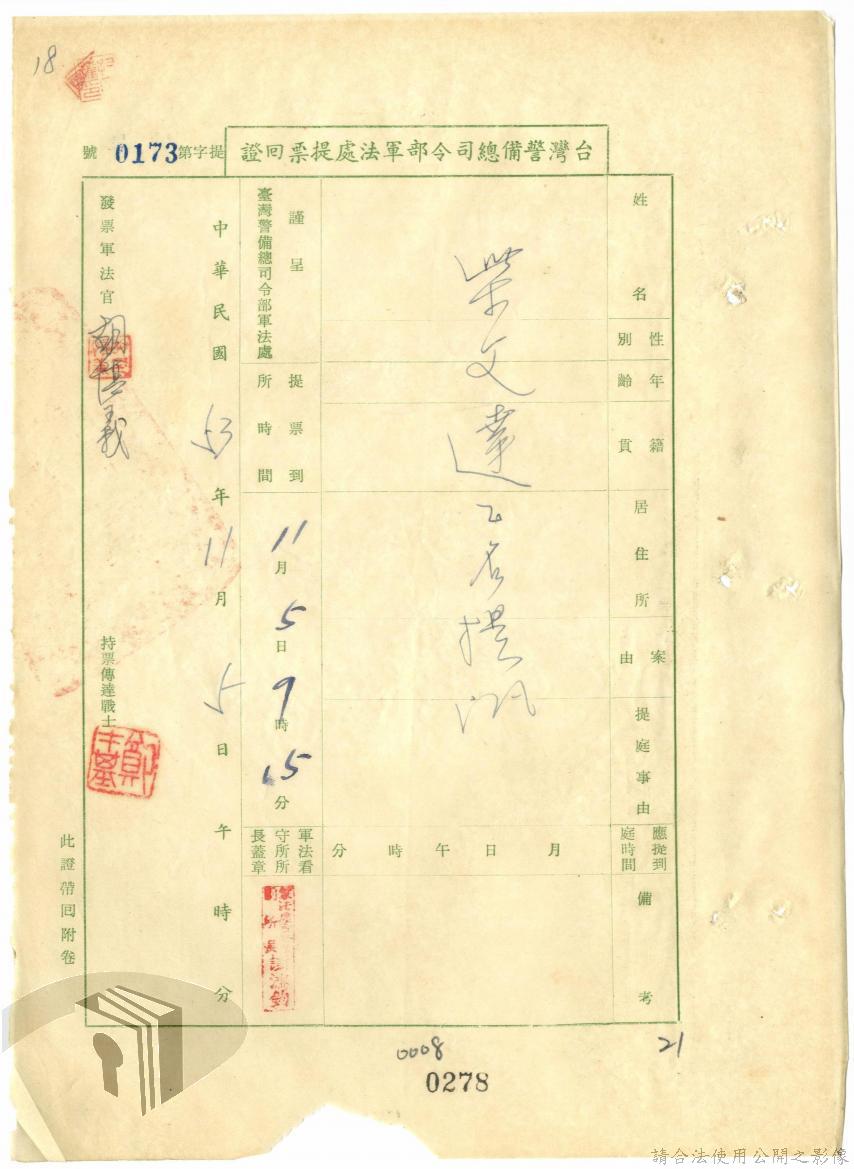 18
台灣警備總司令部軍法處提票回證
提字第0173號
姓名
性別
年齡
籍貫
居住所
案由
提庭事由
應提到庭時間
備考
月日午時分
柴文達乙名提訊
謹呈
臺灣警備總司令部軍法處
提票到所時間
11月5日9時15分
軍法看守所所長蓋章
中華民國53年11月5日午時分
發票軍法官
持票傳達戰士
此證帶回附卷
0008
0278
21
請合法使用公開之影像